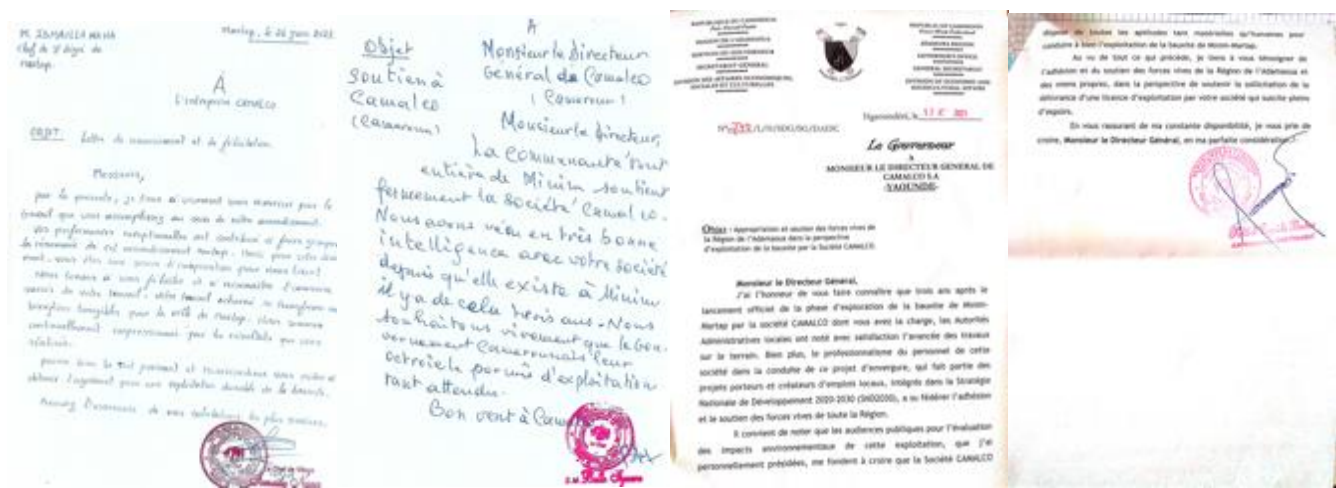 M. ISMAILLA
Chef de
Martap
Martap, le 26 juin 2023
A
L'entreprise CAMALCO
OBJET: Lettre de remerciement et de félicitation.
Messieurs,
par la présente, je tiens à vivement vous remercier pour le
travail que vous accomplissez au sein de notre arrondissement.
performances exceptionnelles ont contribué à faire
de cet arrondissement Martap.
vous êtes une source d'inspiration pour nous tous.
Nous tenons à vous féliciter et à reconnaître
de votre travail. votre travail acharné se transforme en
bénéfices tangibles pour la ville de Martap. Nous sommes
continuellement impressionnés par les résultats que vous
réalisez.
obtenir l'agrément pour une exploitation durable de la bauxite.
salutations les plus sincères.
A
Objet
soutien à
Camalco
(Cameroun)
Monsieur le Directeur
Général de Camalco
(Cameroun)
Monsieur le Directeur,
La communauté tout
entière de Minim soutient
fermement la société Camalco.
Nous avons vécu en très bonne
intelligence avec votre société
depuis qu'elle existe à Minim
il y a de cela trois ans. Nous
souhaitons vivement que le Gou-
vernement Camerounais leur
octroie le permis d'exploitation
tant attendu.
Bon vent à Camalco
REPUBLIQUE DU CAMEROUN
REGION DE L'ADAMAOUA
SERVICES DU GOUVERNEUR
SECRETARIAT GENERAL
DIVISION DES AFFAIRES ECONOMIQUES,
SOCIALES ET CULTURELLES
REPUBLIC OF CAMEROON
ADAMAWA REGION
GOVERNOR'S OFFICE
GENERAL SECRETARIAT
DIVISION OF ECONOMIC AND
SOCIOCULTURAL AFFAIRS
Ngaoundéré, le
Le Gouverneur
A
MONSIEUR LE DIRECTEUR GENERAL DE
CAMALCO SA
-YAOUNDE-
Objet : Appropriation et soutien des forces vives de
la Région de l'Adamaoua dans la perspective
d'exploitation de la bauxite par la Société CAMALCO.
Monsieur le Directeur Général,
J'ai l'honneur de vous faire connaître que trois ans après le
lancement officiel de la phase d'exploration de la bauxite de Minim-
Martap par la société CAMALCO dont vous avez la charge, les Autorités
Administratives locales ont noté avec satisfaction l'avancée des travaux
sur le terrain. Bien plus, le professionnalisme du personnel de cette
société dans la conduite de ce projet d'envergure, qui fait partie des
projets porteurs et créateurs d'emplois locaux, intégrés dans la Stratégie
Nationale de Développement 2020-2030 (SND2030), a su fédérer l'adhésion
et le soutien des forces vives de toute la Région.
Il convient de noter que les audiences publiques pour l'évaluation
des impacts environnementaux de cette exploitation, que j'ai
personnellement présidées, me fondent à croire que la Société CAMALCO
dispose de toutes les aptitudes tant matérielles qu'humaines pour
conduire à bien l'exploitation de la bauxite de Minim-Martap.
Au vu de tout ce qui précède, je tiens à vous témoigner de
l'adhésion et du soutien des forces vives de la Région de l'Adamaoua et
des miens propres, dans la perspective de soutenir la sollicitation de la
délivrance d'une licence d'exploitation par votre société qui suscite pleins
d'espoirs.
En vous rassurant de ma constante disponibilité, je vous prie de
croire, Monsieur le Directeur Général, en ma parfaite considération.